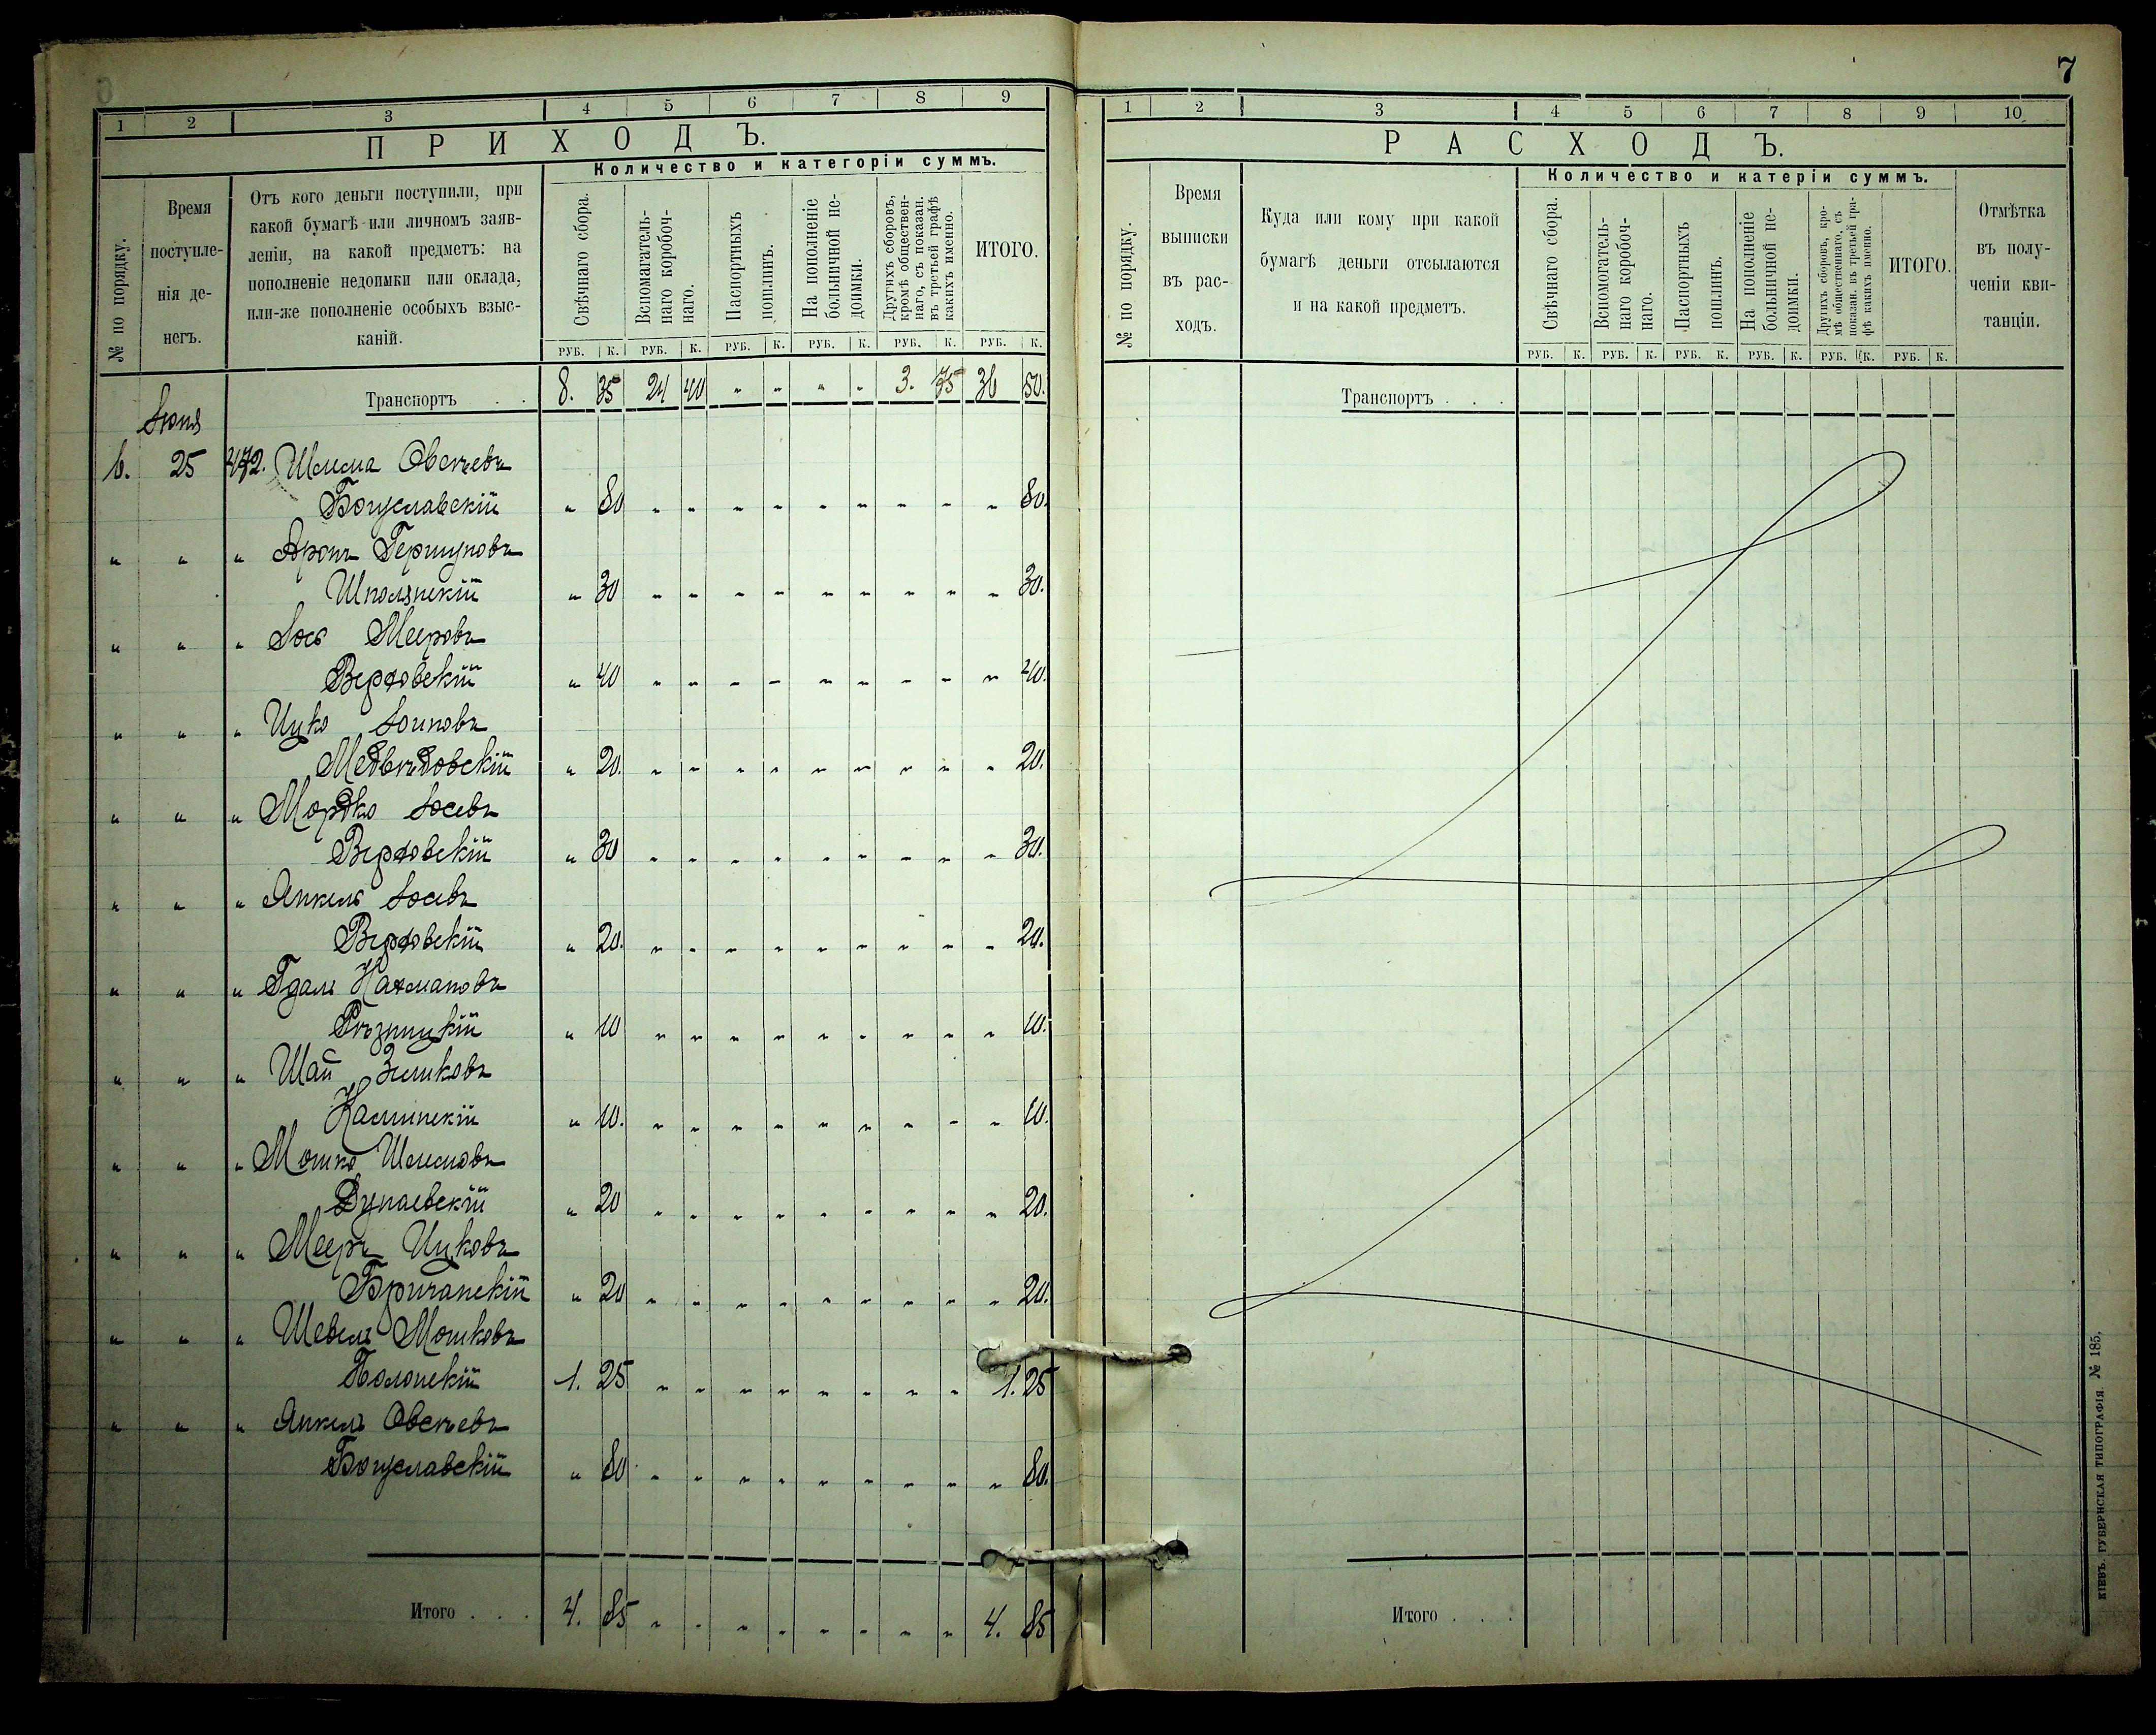 7
1 2 3 4 5 6 7 8 9
ПРИХОДЪ.
Количество и категоріи суммъ.
№ по порядку.
Время
поступле-
нія де-
негъ.
Отъ кого деньги поступили, при
какой бумагѣ или личномъ заяв-
леніи, на какой предметъ: на
пополненіе недоимки или оклада,
или-же пополненіе особыхъ взыс-
каній.
Свѣчнаго сбора.
Вспомагатель-
наго коробоч-
наго.
Паспортныхъ
пошлинъ.
На пополненіе
больничной не-
доимки.
Другихъ сборовъ,
кромѣ обществен-
наго, съ показан.
въ третьей графѣ
какихъ именно.
ИТОГО.
РУБ. К. РУБ. К. РУБ. К. РУБ. К. РУБ. К. РУБ. К.
Транспортъ . . 8. 35 24 40 " " " " 3. 75 36 50.
Іюня
6. 25 472. Шлема Овсѣевъ
Богуславскій " 80 " " " " " " " " " 80.
" " " Аронъ Гершуновъ
Шполянскій " 30 " " " " " " " " " 30.
" " " Іось Мееровъ
Верховскій " 40 " " " " " " " " " 40.
" " " Ицко Іоиновъ
Медвѣдовскій " 20. " " " " " " " " " 20.
" " " Мордко Іосевъ
Верховскій " 30 " " " " " " " " " 30.
" " " Янкель Іосевъ
Верховскій " 20. " " " " " " " " " 20.
" " " Гдаль Нахмановъ
Рѣзницкій " 10 " " " " " " " " " 10.
" " " Шая
" 10. " " " " " " " " " 10.
" " " Мошко Шлемовъ
Дунаевскій " 20 " " " " " " " " " 20.
" " " Мееръ Ицковъ
Бричанскій " 20 " " " " " " " " " 20.
" " " Шевель Мошковъ
Полонскій 1. 25 " " " " " " " " 1. 25
" " " Янкель Овсѣевъ
Богуславскій " 80 " " " " " " " " " 80.
Итого . . . 4. 85 " " " " " " " " 4. 85
1 2 3 4 5 6 7 8 9 10
РАСХОДЪ.
Количество и катеріи суммъ.
№ по порядку.
Время
выписки
въ рас-
ходъ.
Куда или кому при какой
бумагѣ деньги отсылаются
и на какой предметъ.
Свѣчнаго сбора.
Вспомогатель-
наго коробоч-
наго.
Паспортныхъ
пошлинъ.
На пополненіе
больничной не-
доимки.
Другихъ сборовъ, кро-
мѣ общественнаго, съ
показан. въ третьей гра-
фѣ какихъ именно.
ИТОГО.
Отмѣтка
въ полу-
ченіи кви-
танціи.
РУБ. К. РУБ. К. РУБ. К. РУБ. К. РУБ. К. РУБ. К.
Транспортъ . . .
Итого . . .
КІЕВЪ. ГУБЕРНСКАЯ ТИПОГРАФІЯ. № 185.